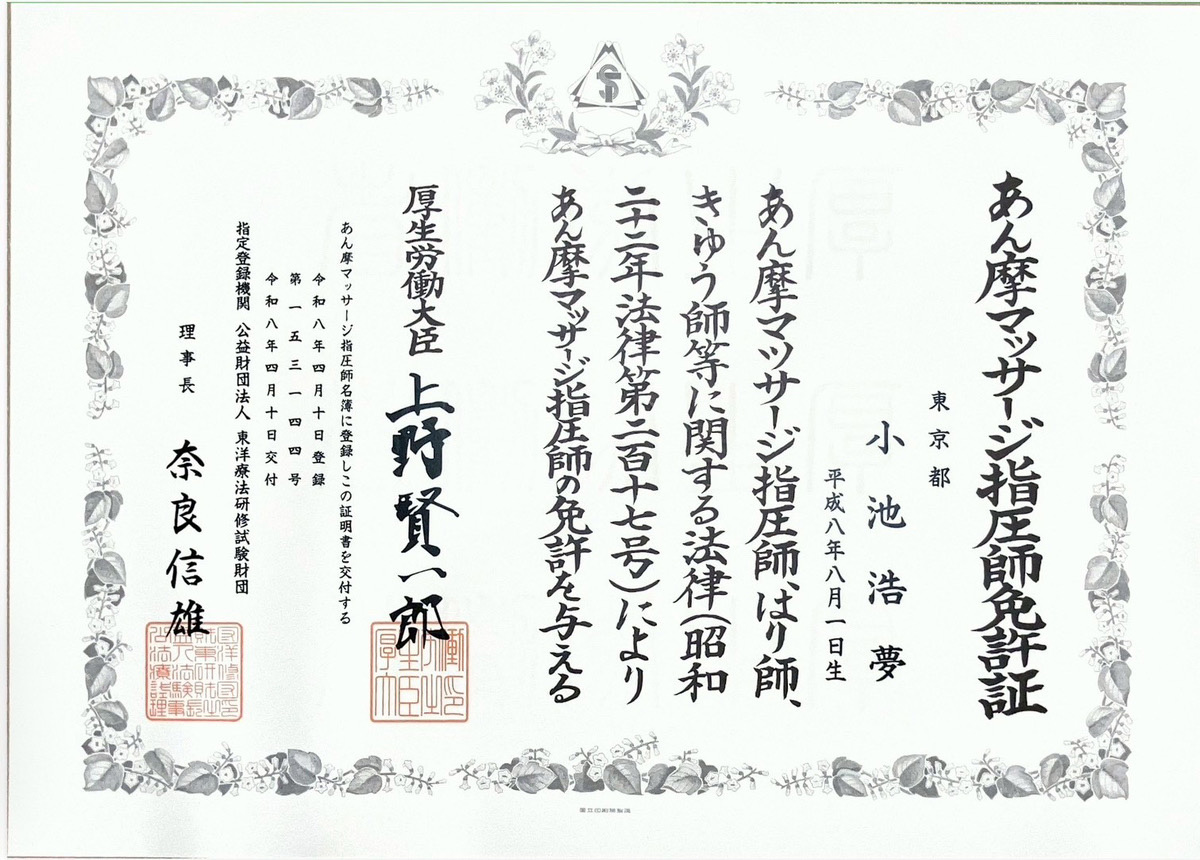 あん摩マッサージ指圧師免許証
東京都
小池浩夢
平成八年八月一日生
あん摩マツサージ指圧師、はり師、
きゆう師等に関する法律(昭和
二十二年法律第二百十七号)により
あん摩マッサージ指圧師の免許を与える
厚生労働大臣 上野賢一郎
あん摩マッサージ指圧師名簿に登録しこの証明書を交付する
令和八年四月十日登録
第一五三一四四号
令和八年四月十日交付
指定登録機関 公益財団法人 東洋療法研修試験財団
理事長 奈良信雄